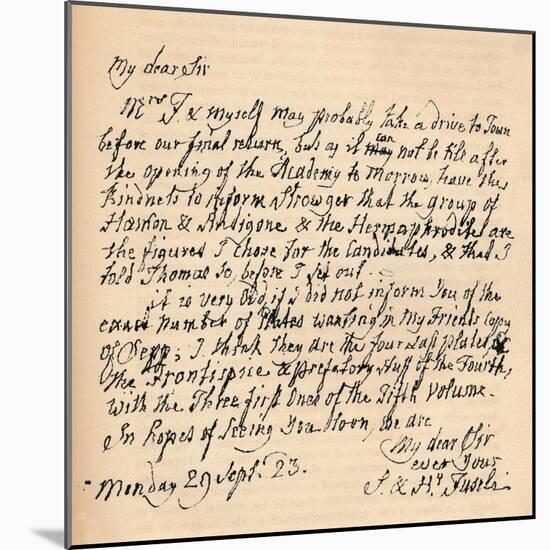 My dear Sir
Mrs F & Myself May probably take a drive to Town
before our final return, but as it may can not be till after
the opening of the Academy to Morrow, have the
Kindness to inform Strowger that the group of
Hæmon & Antigone & the Hermaphrodite are
the figures I chose for the Candidates, & that I
told Thomas so, before I set out.
it is very Odd, if I did not inform You of the
exact Number of Plates wanting in My Friends Copy
of Sepp; I think they are the four Last plates, &
the Frontispice & prefatory stuff of the Fourth,
with the Three first Ones of the Fifth Volume.
In Hopes of Seeing You Soon, we are
My dear Sir
ever Yours
S. & Hy Fuseli
Monday 29 Sept. 23.